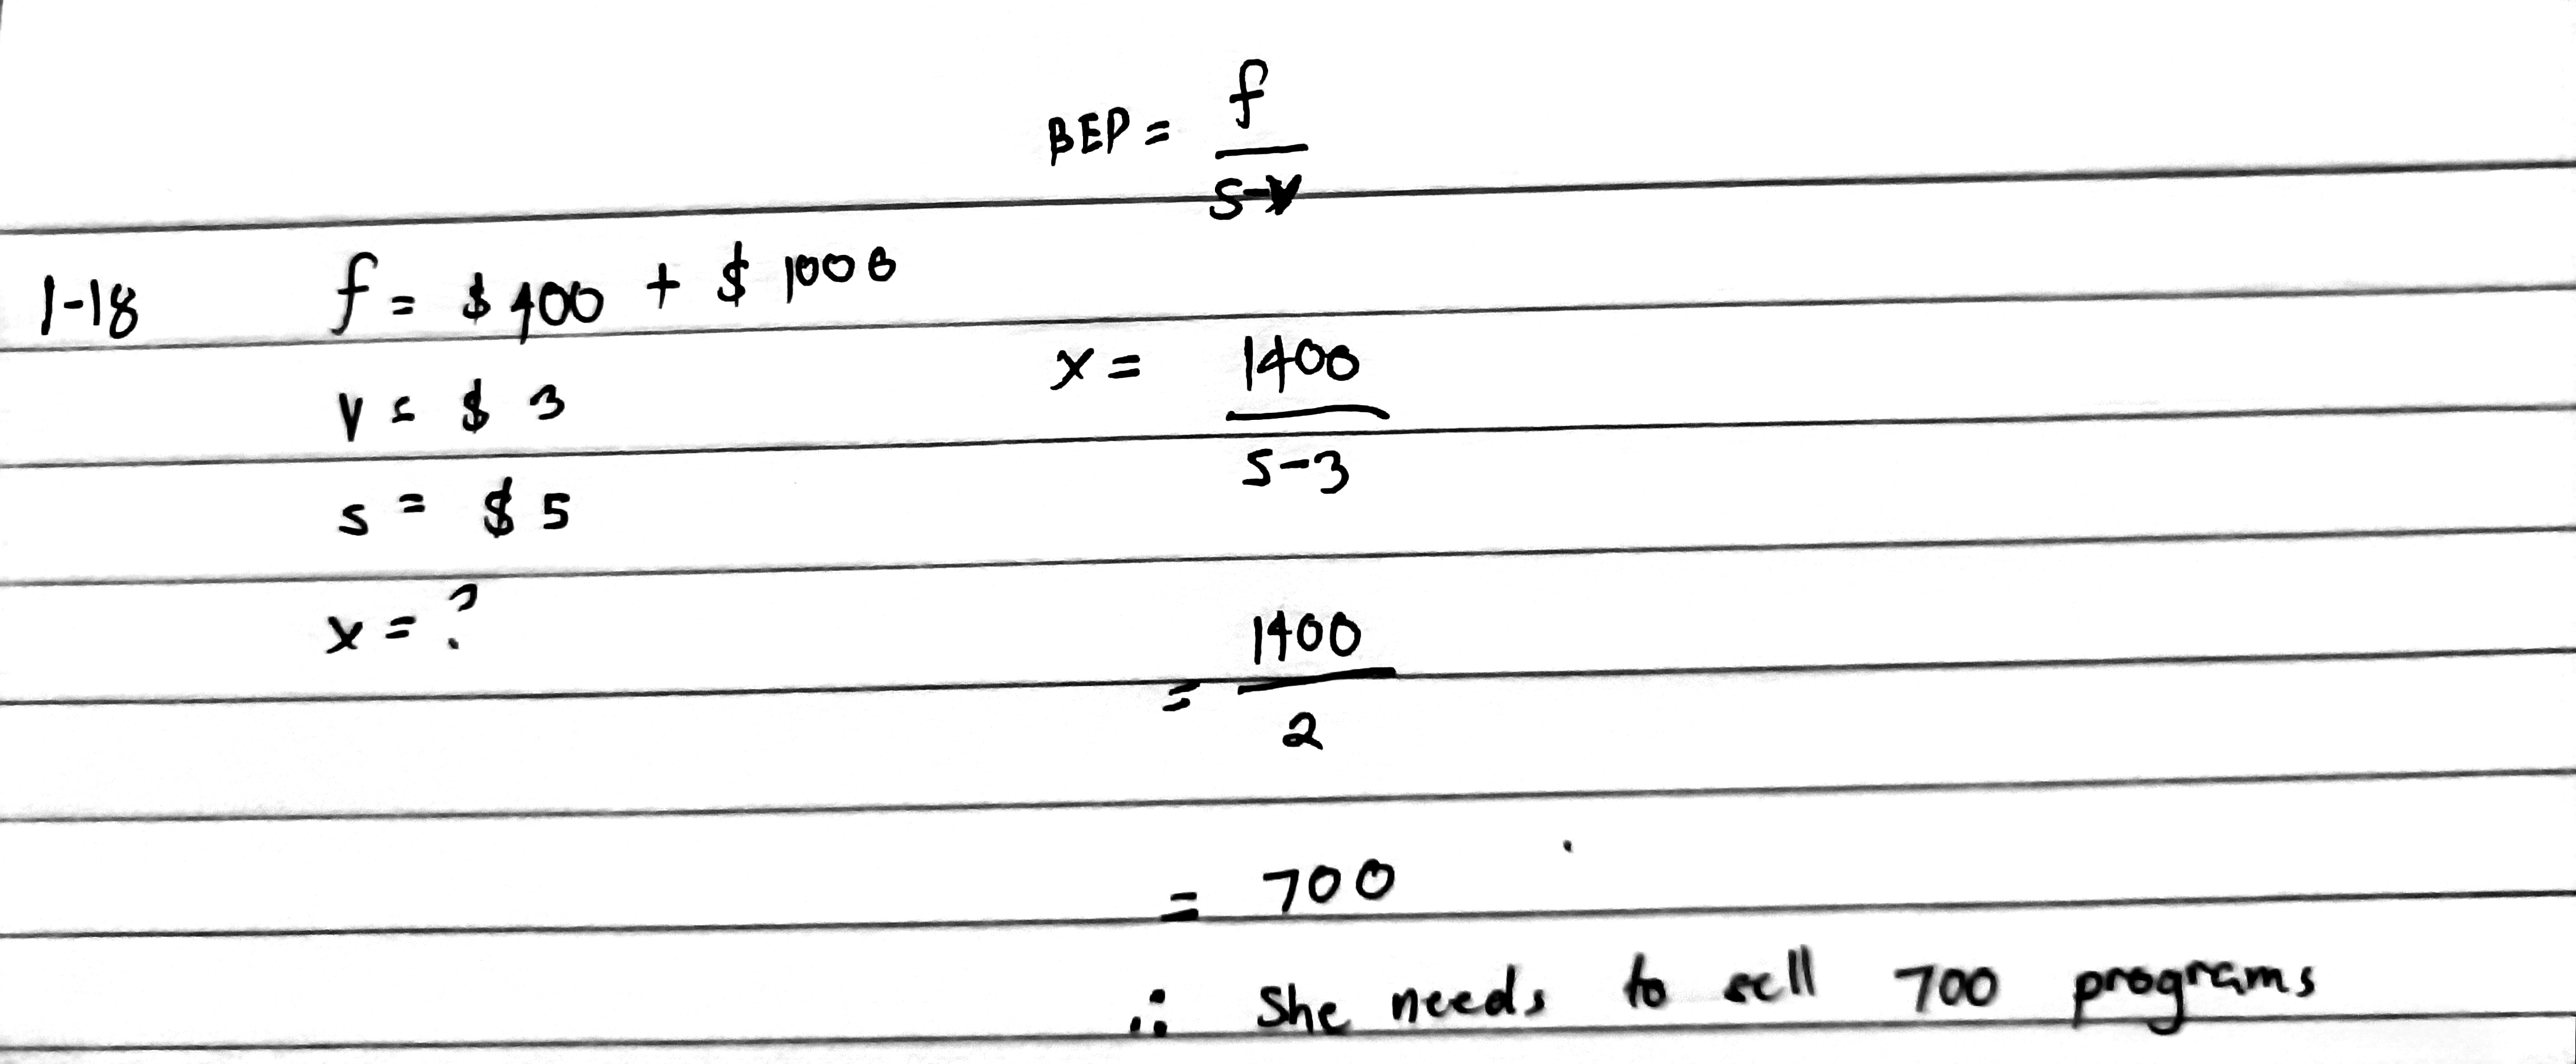 BEP = f
s-v
1-18 f = $ 400 + $ 1000
x = 1400
v = $ 3
5-3
s = $ 5
x = ?
= 1400
2
= 700
∴ She needs to sell 700 programs